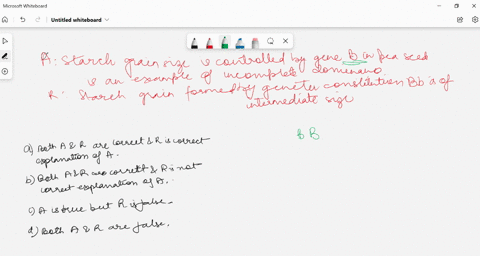 Microsoft Whiteboard
Untitled whiteboard
A: Starch grain size is controlled by gene B in pea seed
is an example of incomplete dominance.
R: Starch grain formed by genetic constitution Bb is of
intermediate size
b B
a) Both A & R are correct & R is correct
explanation of A.
b) Both A & R are correct & R is not
correct explanation of A.
c) A is true but R is false.
d) Both A & R are false.